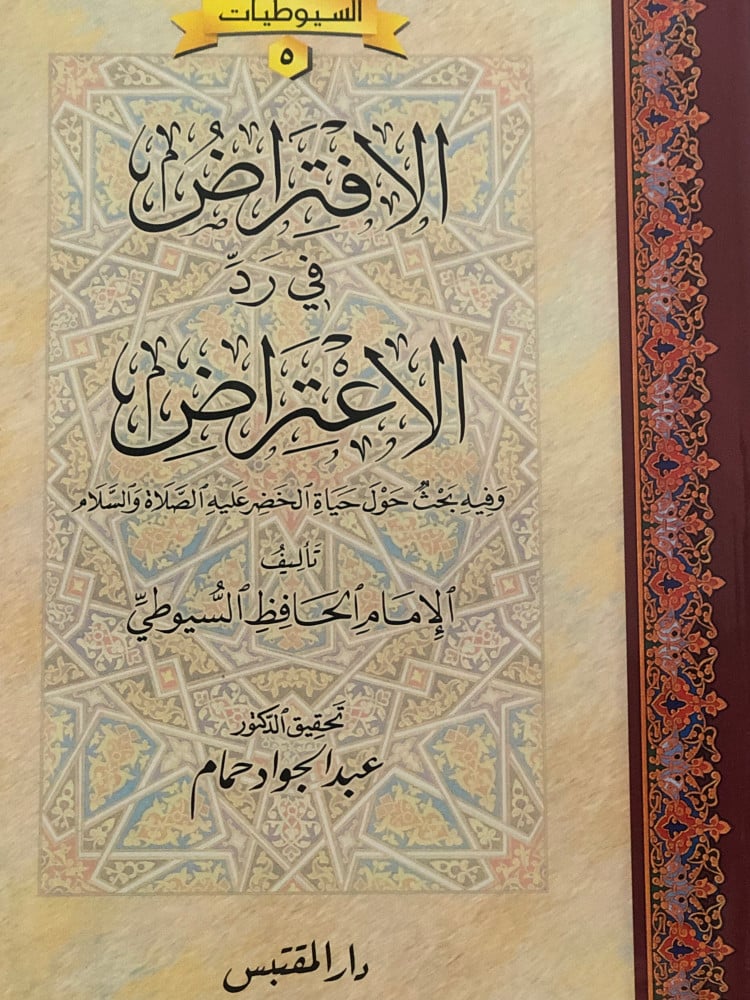 السيوطيات
٥
الافْتِرَاضُ
في رَدِّ
الاعْتِرَاضِ
وَفِيهِ بَحْثٌ حَوْلَ حَيَاةِ الخَضِر عَلَيهِ الصَّلَاة وَالسَّلَام
تَأليفُ
الإمَامِ الحَافِظِ السُّيوطيِّ
تحقيق الدكتور
عبد الجواد حمام
دار المقتبس